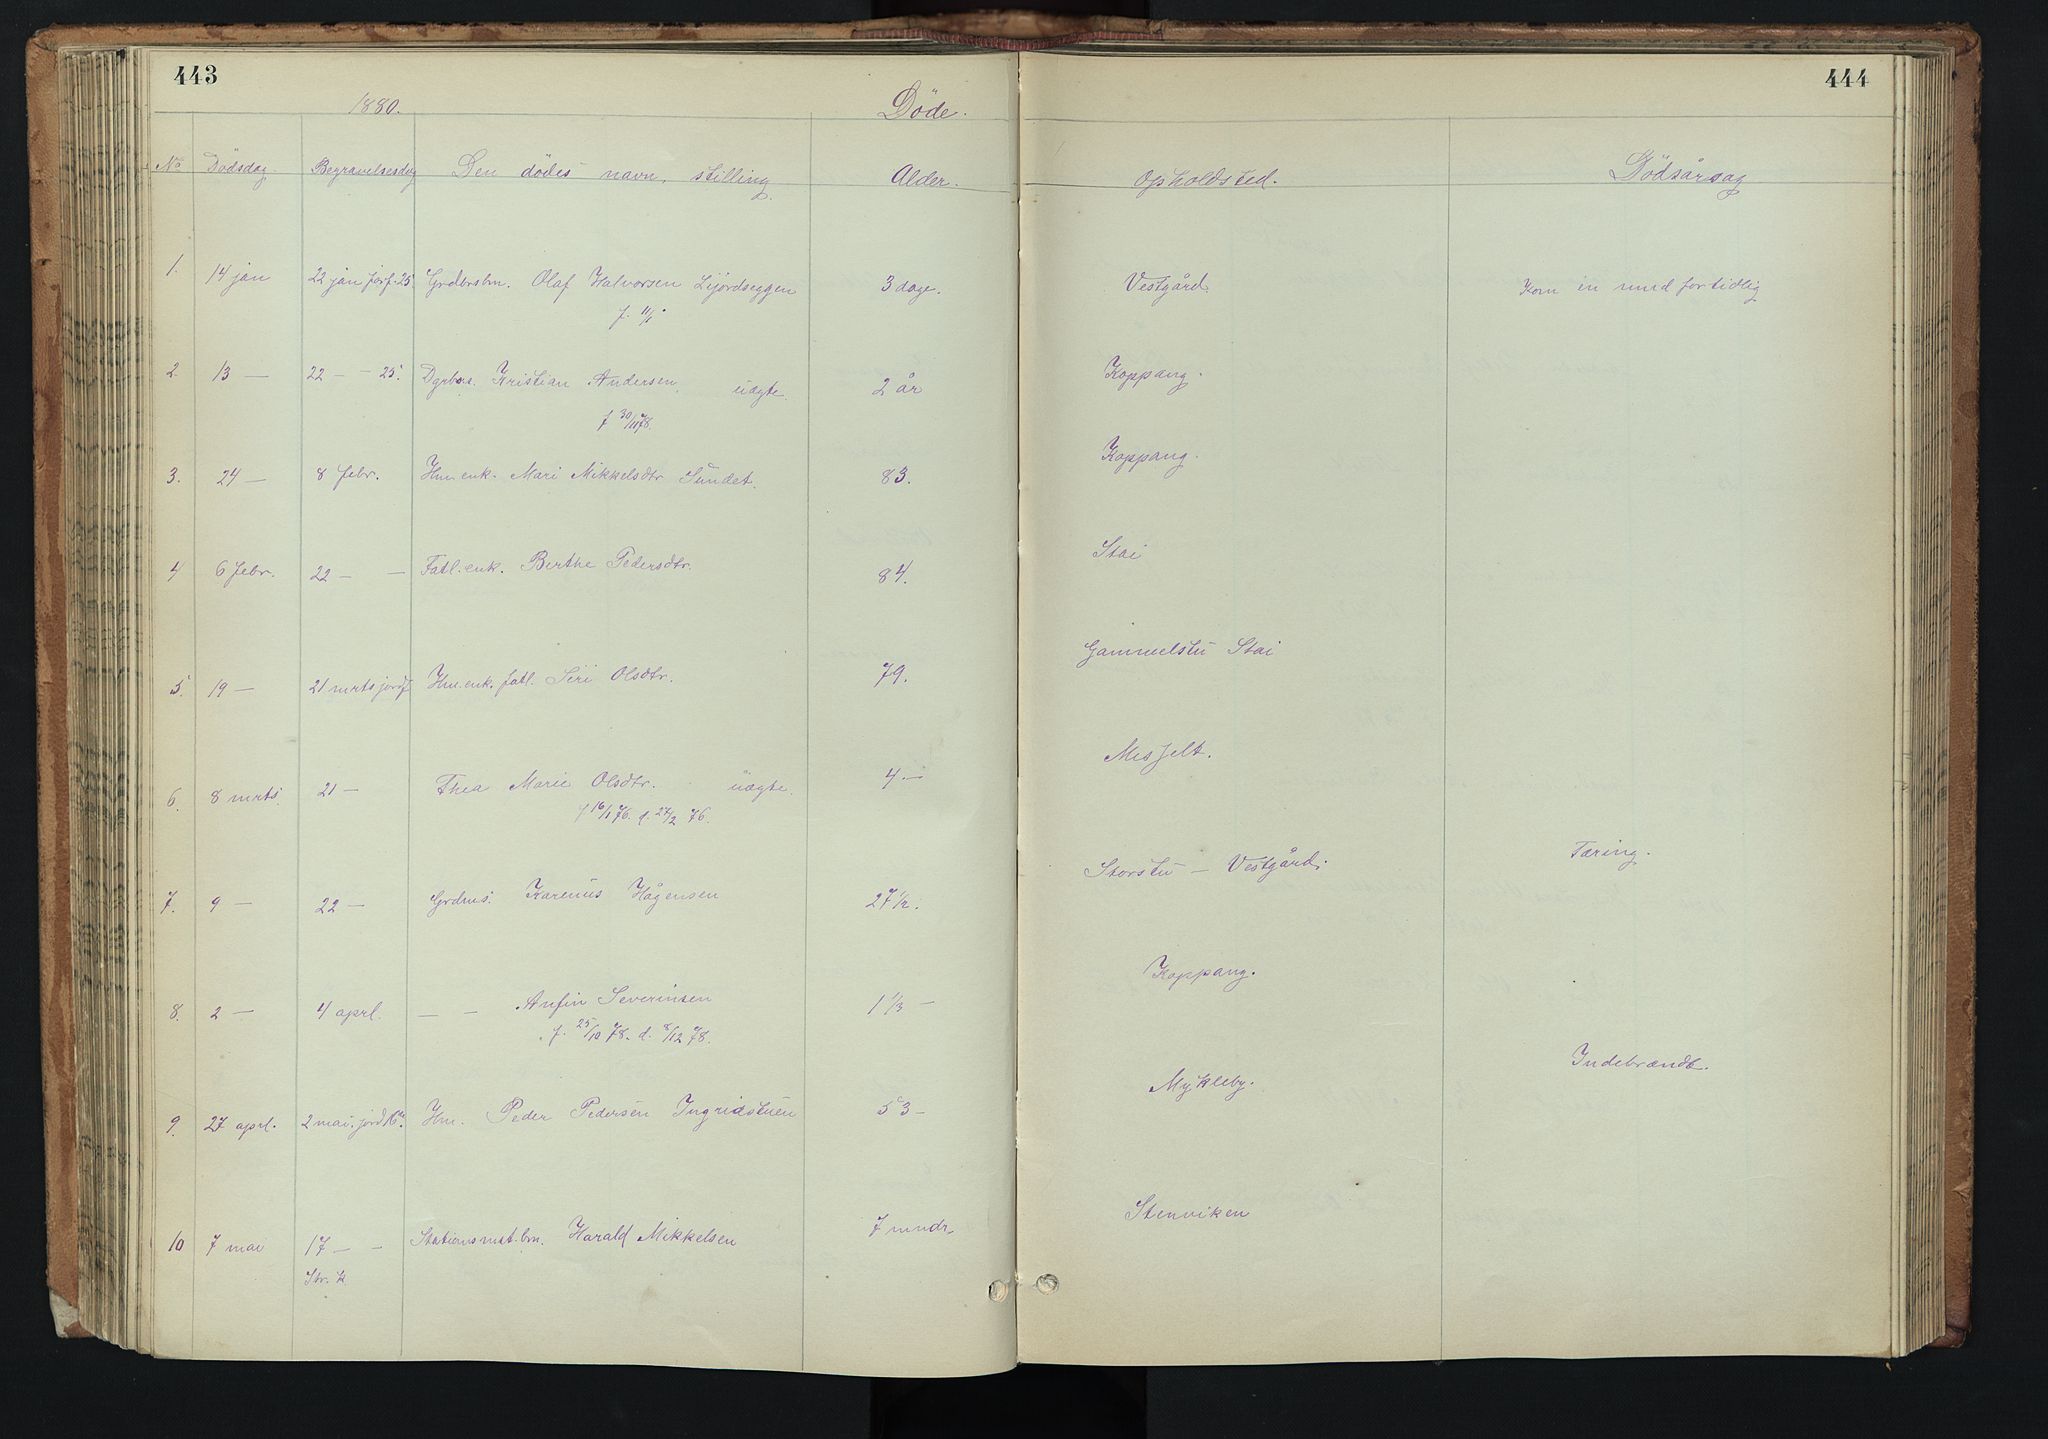 443
444
1880. Döde.
No Dödsdag. Begravelsesdag Den dödes navn, stilling. Alder. Opholdsted. Dödsårsag
1. 14 jan 22 jan jorf. 25. Grdbrsbn. Olaf Halvorsen Lijördseggen 3 dage. Vestgård. Kom en mnd for tidlig
f. 11/1.
2. 13 — 22 — - 25. Kristian Andersen. uægte. 2 år Koppang.
f 30/11 78.
3. 24 — 8 febr. Hm. enk. Mari Mikkelsdtr Sundet. 83. Koppang.
4 6 febr. 22 — — Fatl. enk. Berthe Pedersdtr. 84. Stai
5. 19 — 21 mrts jordf Hm. enk. fatl. Siri Olsdtr. 79. Gammelstu Stai
6. 8 mrts. 21 — Thea Marie Olsdtr. uægte. 4 — Messelt.
f 16/1 76. d. 27/2 76.
7. 9 — 22 — Grdms. Karenus Hågensen 27 1/2. Storstu — Vestgård. Tæring.
8. 2 — 4 aprl. — — Anfin Severinsen 1 1/3 — Koppang.
f. 25/10 78. d. 8/12 78.
9. 27 aprl. 2 mai. jord 16de. Hm. Peder Pedersen Ingridstuen 53 — Mykleby. Indebrændt.
10 7 mai 17 — - Stationsmst. bn. Harald Mikkelsen 7 mndr. Stenviken
Str. k